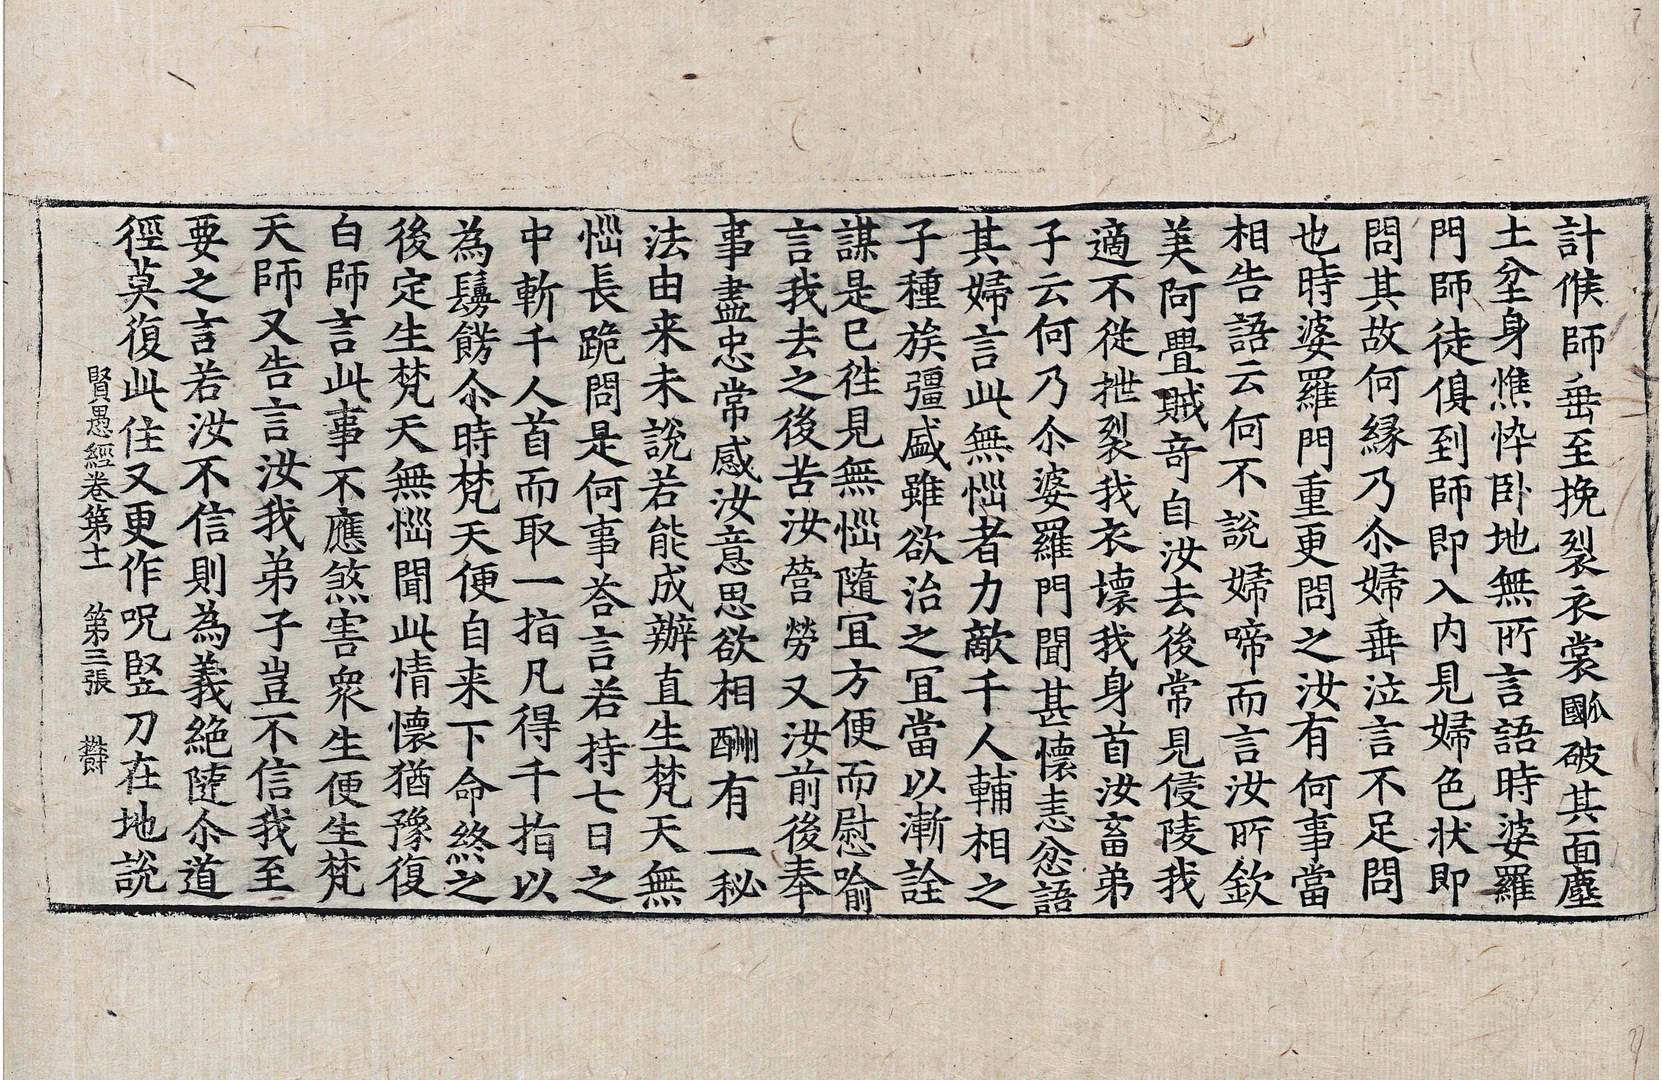 計候師垂至挽裂衣裳㕦破其面塵
土坌身憔悴臥地無所言語時婆羅
門師徒俱到師即入內見婦色狀即
問其故何緣乃尒婦垂泣言不足問
也時婆羅門重更問之汝有何事當
相告語云何不說婦啼而言汝所欽
美阿疊賊奇自汝去後常見侵陵我
適不從抴裂我衣壞我身首汝畜弟
子云何乃尒婆羅門聞甚懷恚忿語
其婦言此無惱者力敵千人輔相之
子種族彊盛雖欲治之宜當以漸詮
謀是已徃見無惱隨宜方便而慰喻
言我去之後苦汝營勞又汝前後奉
事盡忠常感汝意思欲相酬有一秘
法由来未說若能成辦直生梵天無
惱長跪問是何事荅言若持七日之
中斬千人首而取一指凡得千指以
為鬘餝尒時梵天便自来下命終之
後定生梵天無惱聞此情懷猶豫復
白師言此事不應煞害眾生便生梵
天師又告言汝我弟子豈不信我至
要之言若汝不信則為義絕隨尒道
徑莫復此住又更作呪竪刀在地說
賢愚經卷第十一 第三張 欝